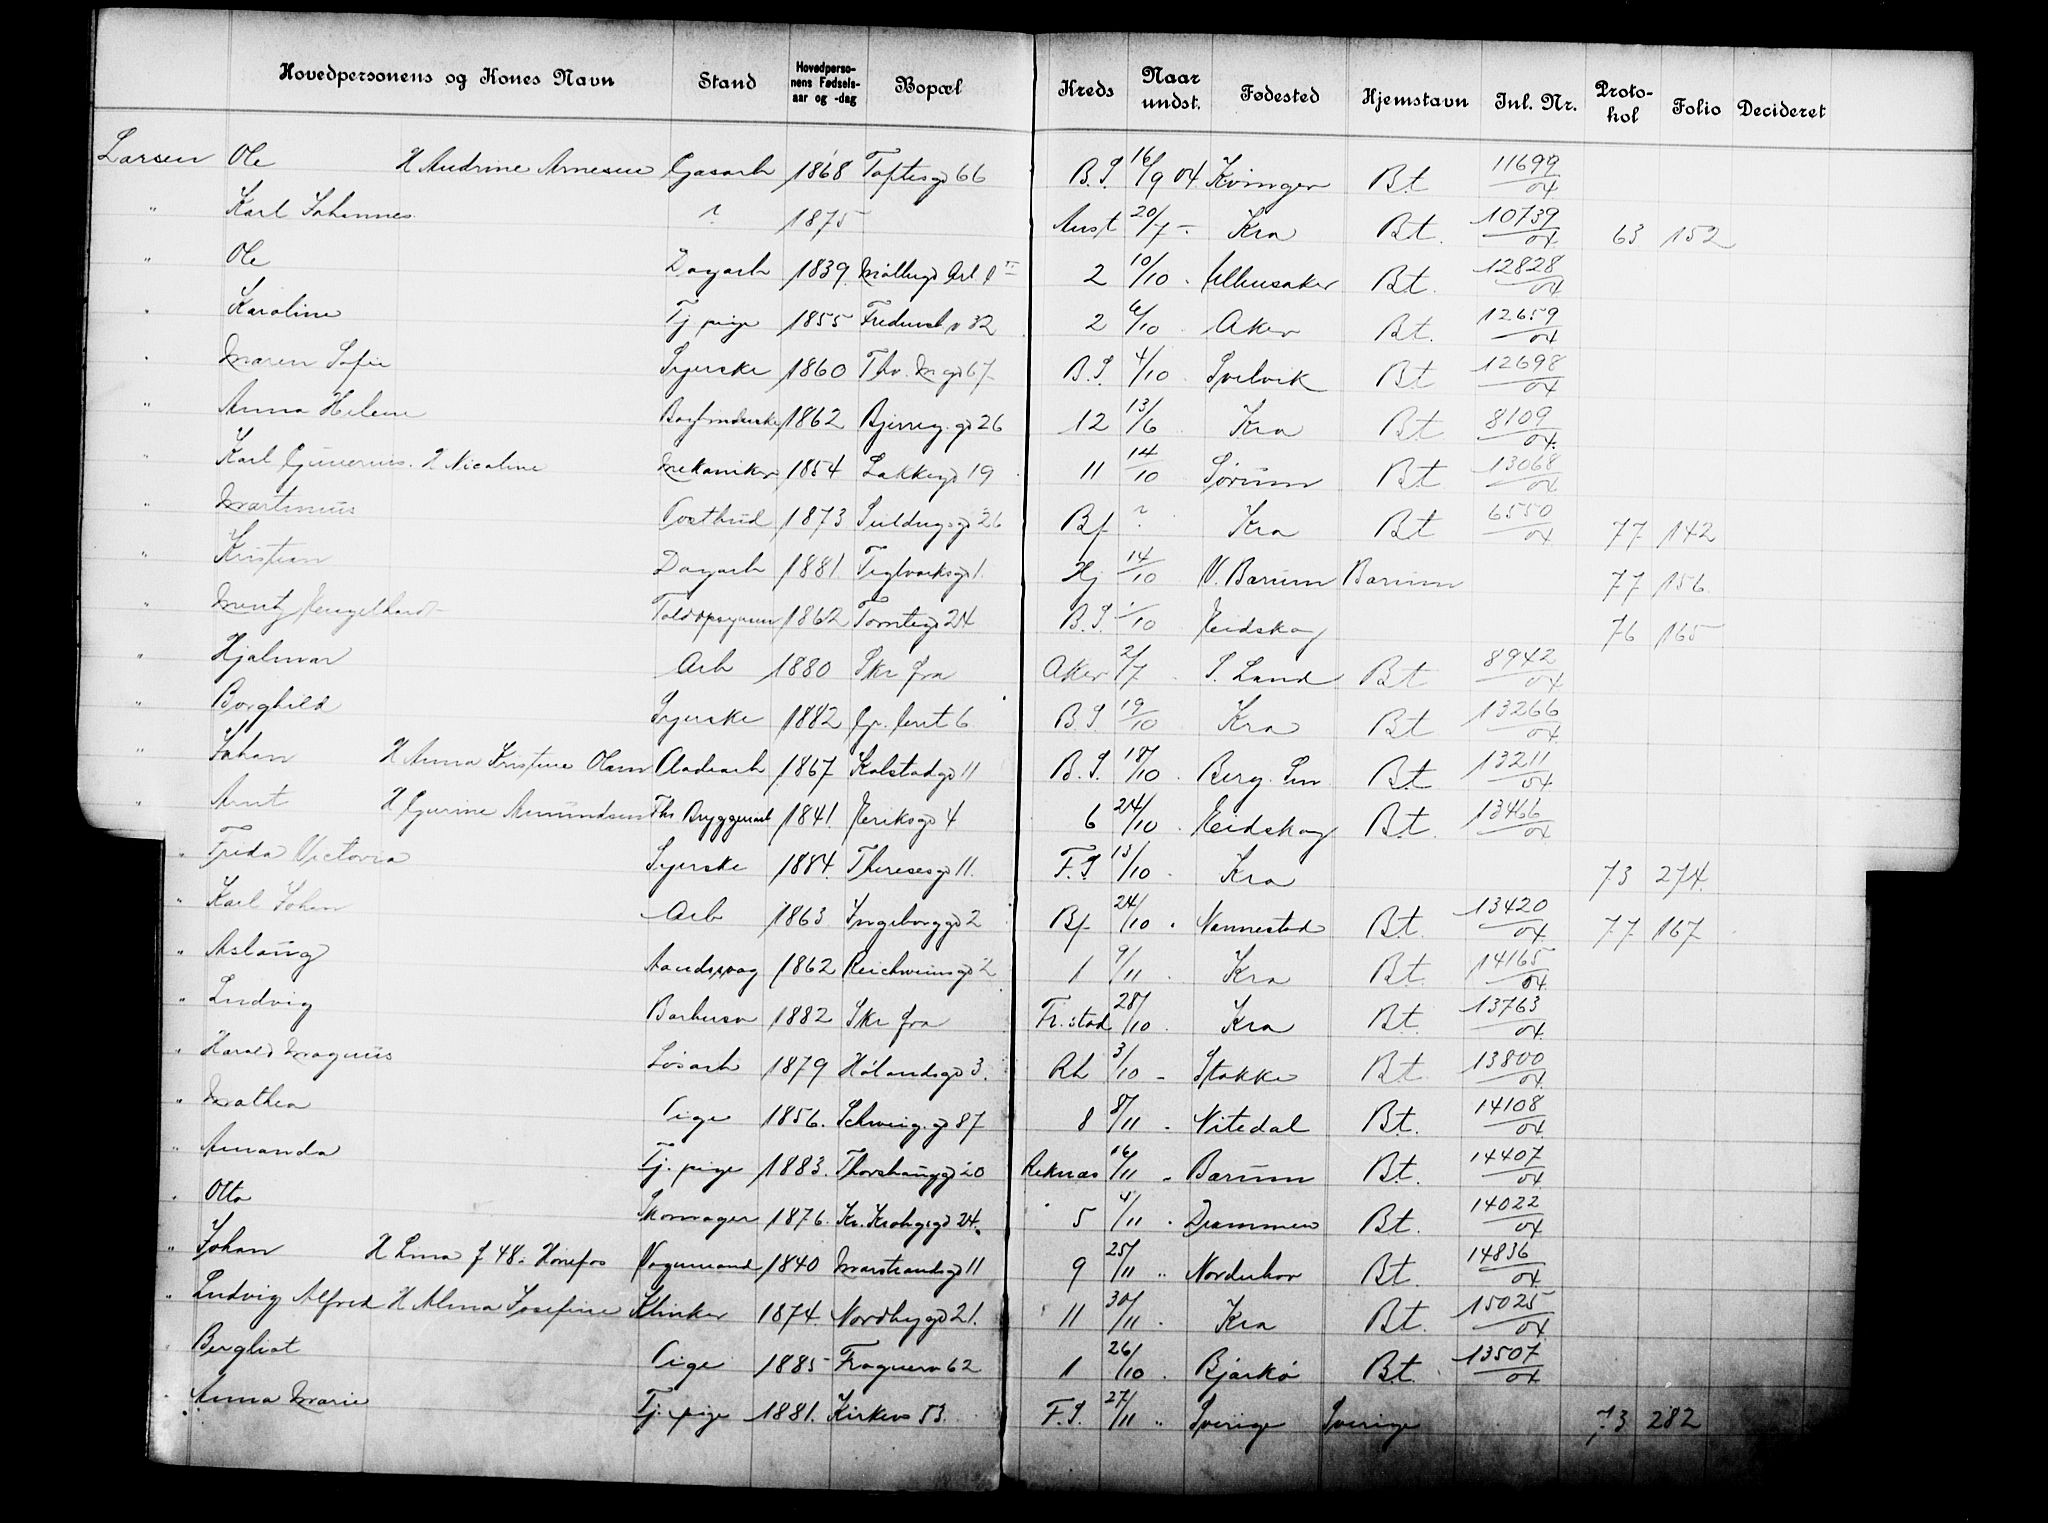 Hovedpersonens og Kones Navn Stand Hovedpersonens Fødselsaar og -dag Bopæl Kreds Naar undst. Fødested Hjemstavn Inl. Nr. Protokol Folio Decideret
Larsen Ole H Andrine Arnesen Gasarb 1868 Toftesgd 66 B.S. 16/9 04 Kvinger Bt 11699/04
" Karl Johannes ? 1875 Aust 20/7 - Kra Bt. 10739/04 63 152
" Ole Dagarb 1839. Møllergd Arb 2 10/10 Ullensaker Bt. 12828/04
" Karoline Tj pige 1855 32 2 6/10 Aker Bt. 12659/04
" Maren Sofie Syerske 1860 Thv. M gd 67 B.S. 4/10 Svelvik Bt 12698/04
" Anna Helene Bogbinderske 1862 gd 26 12 13/6 Kra Bt 8109/04.
" Karl Gunerius. H Nicoline Mekaniker 1854 Lakkegd 19 11 14/10 Sørum Bt. 13068/04
" Martinius Postbud 1873 26 Bf ? Kra Bt 6550/04 77 142
" Kristian Dagarb 1881. Teglverksgd 1. Hj 14/10 V. Bærum Bærum 77 156.
" Mentz Engelhardt 1862 Tomtegd 24 B.S. /10 Eidskog 76 165
" Hjalmar Arb 1880 Skr fra Aker 2/7 S. Land Bt 8942/04
" Borghild Syerske 1882 Gr. 6 B.S 19/10 Kra Bt 13266/04.
" Johan H Anna Kristine Olsen 1867 Kalstadgd 11 B.S. 18/10 Berg. Sm Bt. 13211/04
" Arnt H Gurine Amundsen Fhv Bryggeriarb 1841. Eriksgd 4 6 24/10 Eidskog Bt. 13466/04
" Frida Victoria Syerske 1884. Theresesgd 11. F.S. 13/10 Kra 73 274.
" Karl Johan Arb 1863 Ingeborggd 2 Bf 24/10 Nannestad Bt. 13420/04. 77 167
" Aslaug 1862 Reichweinsgd 2 1 9/11 Kra Bt 14165/04.
" Ludvig Barbersv 1882 Skr fra Fr.stad 28/10 Kra Bt. 13763/04.
" Harald Magnus Løsarb 1879 Hølandsgd 3. Rh 3/10 - Stokke Bt. 13800/04.
" Mathea Pige 1856. Schweig. gd 87 8 8/11 Nitedal Bt. 14108/04.
" Amanda Tj. pige 1883. Thorshauggd 20 Reknæs 16/11 Bærum Bt. 14407/04
" Otto Skomager 1876. Kr. Krohgsgd 24. 5 4/11 Drammen Bt. 14022/04
" Johan H Lina f 48. Hønefos Vognmand 1840 Marstrandsgd 11 9 25/11 " Norderhov Bt. 14836/04.
" Ludvig Alfred H Alma Josefine Klinker 1874. Nordbygd 21. 11 30/11 Kra Bt. 15025/04.
Bergliot Pige 1885 Frognerv 62 1 26/10 Bjarkø Bt. 13507/04
" Anna Marie Tj. pige 1881. Kirkev 53. F.S. 27/11 " Sverige Sverige 73 282